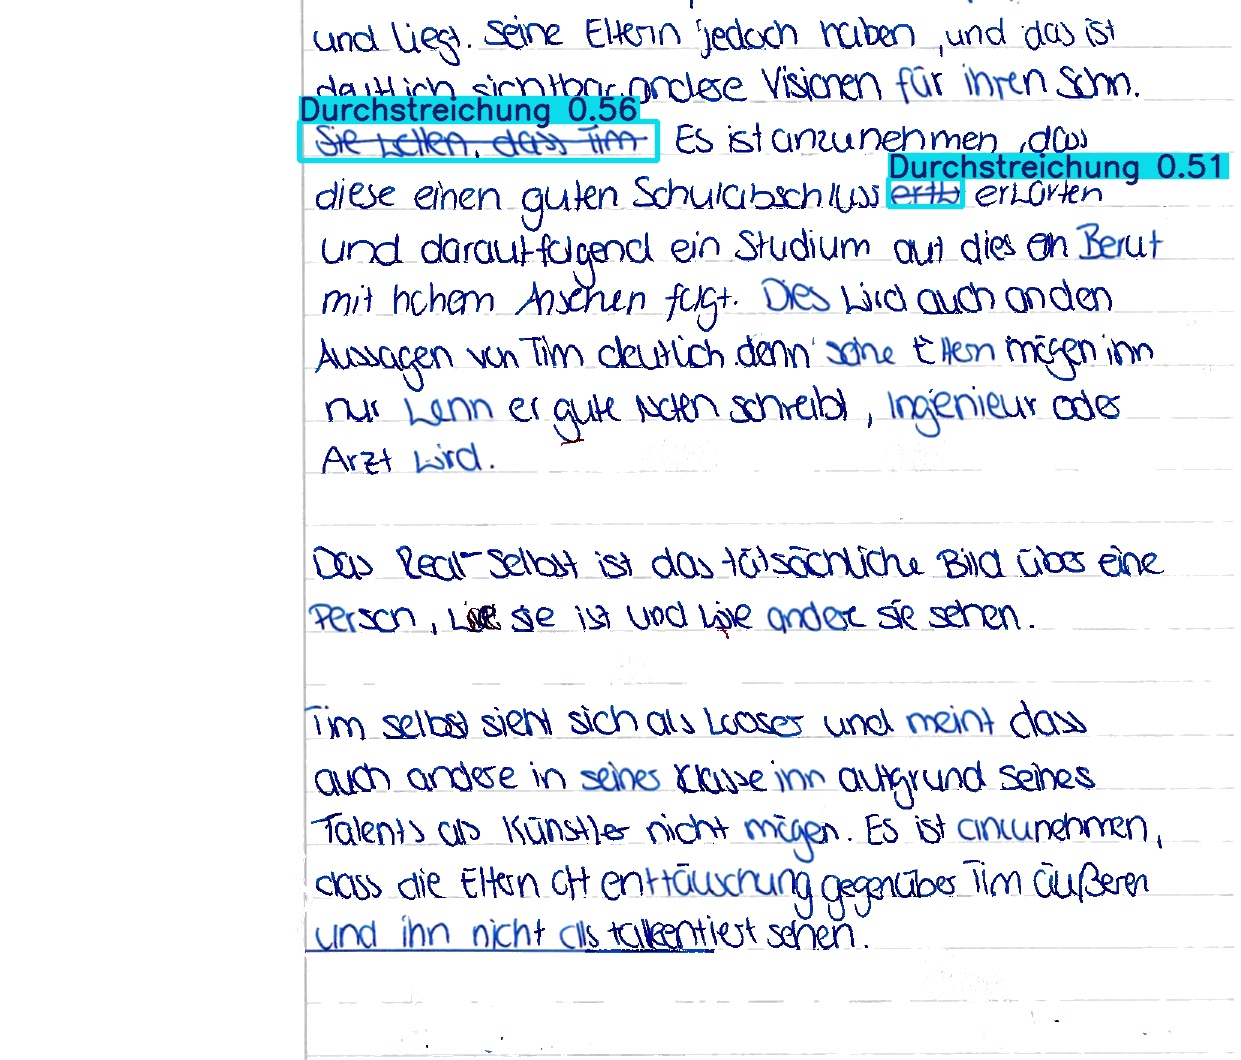 und liegt. Seine Eltern jedoch haben, und das ist
deutlich sichtbar andere Visionen für ihren Sohn.
Durchstreichung 0.56
Sie wollen, dass Tim Es ist anzunehmen, dass
Durchstreichung 0.51
diese einen guten Schulabschluss erwarten
und darauffolgend ein Studium auf dies ein Beruf
mit hohem Ansehen folgt. Dies wird auch an den
Aussagen von Tim deutlich denn seine Eltern mögen inn
nur wenn er gute Noten schreibt, Ingenieur oder
Arzt wird.
Das Real-Selbst ist das tatsächliche Bild über eine
Person, wie sie ist und wie andere sie sehen.
Tim selbst sieht sich als Looser und meint dass
auch andere in seiner Klasse inn aufgrund seines
Talents als Künstler nicht mögen. Es ist anzunehmen,
dass die Eltern oft enttäuschung gegenüber Tim äußeren
und ihn nicht als talentiert sehen.